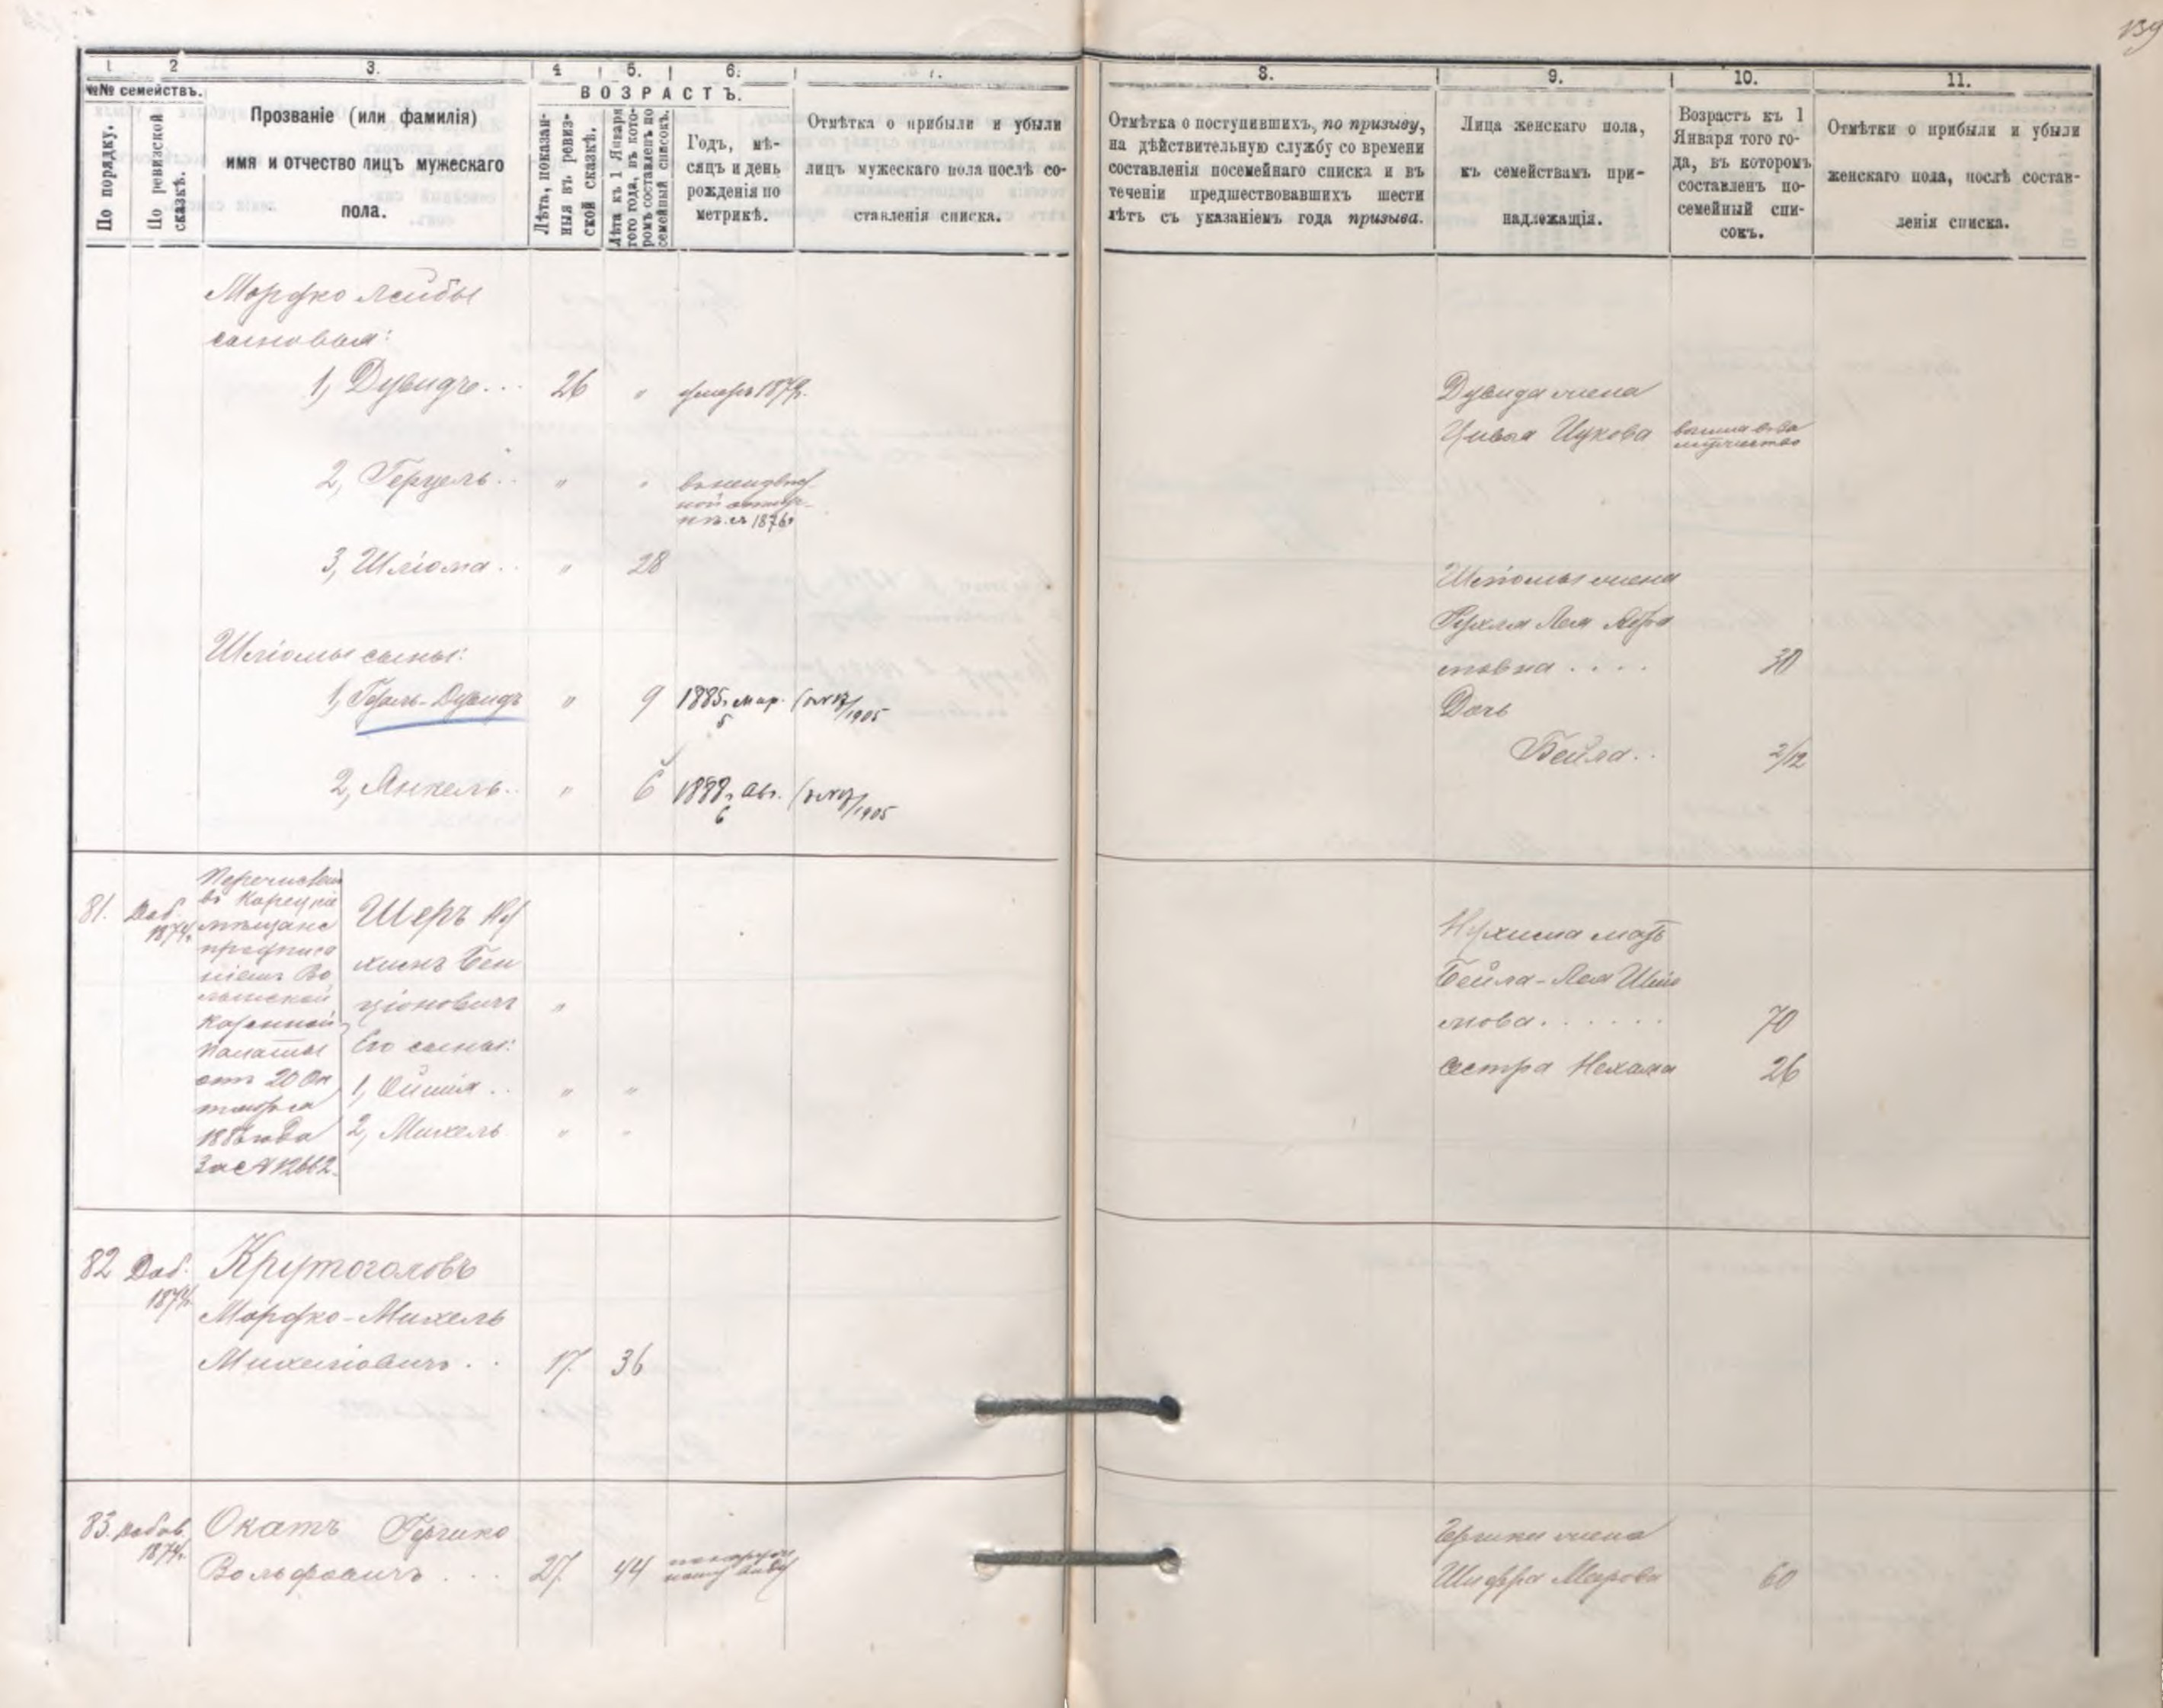 139
1
2
3.
4
5.
6.
7.
8.
9.
10.
11.
№№ семействъ.
По порядку.
По ревизской сказкѣ.
Прозваніе (или фамилія)
имя и отчество лицъ мужескаго
пола.
ВОЗРАСТЪ.
Лѣта, показан-
ныя въ ревиз-
ской сказкѣ.
Лѣта къ 1 Января
того года, въ кото-
ромъ составленъ по
семейный списокъ.
Годъ, мѣ-
сяцъ и день
рожденія по
метрикѣ.
Отмѣтка о прибыли и убыли
лицъ мужескаго пола послѣ со-
ставленія списка.
Отмѣтка о поступившихъ, по призыву,
на дѣйствительную службу со времени
составленія посемейнаго списка и въ
теченіи предшествовавшихъ шести
лѣтъ съ указаніемъ года призыва.
Лица женскаго пола,
къ семействамъ при-
надлежащія.
Возрастъ къ 1
Января того го-
да, въ которомъ
составленъ по-
семейный спи-
сокъ.
Отмѣтки о прибыли и убыли
женскаго пола, послѣ состав-
ленія списка.
Мордко Лейбы
сыновья:
1, Дувидъ... 26 " умеръ 1879г.
Дувида жена
Цивья Ицкова
2, Герцель.. " "
1876г
3, Шліома.. " 28
Шліомы жена
Рухля Лея Абра
мовна.... 30
Шліомы сыны:
1, Герцель-Дувидъ " 9 1885г. мар. 5 /1905
Дочь
Бейла.. 2/12
2, Янкель.. " 6 1888г. Ав. 6 /1905
81. Доб. 1874г.
Перечислен
въ Корецкіе
мѣщане
предписа
ніемъ Во
лынской
Казенной
Палаты
отъ 20 Ок
тября
188 года
За № 12662.
Шеръ Ну
химъ Бен
ціоновичъ "
Его сыны:
1, Ойшія.. " "
2, Михель " "
Нухима мать
Бейла-Лея Шліо
мова...... 70
Сестра Нехама 26
82 Доб. 1874г. Крутоголовъ
Мордко-Михель
Михеліовичъ.. 17 36
83. Добав. 1874г. Окатъ Гершко
Вольфовичъ... 27 44
Гершки жена
Шифра Мерова 60